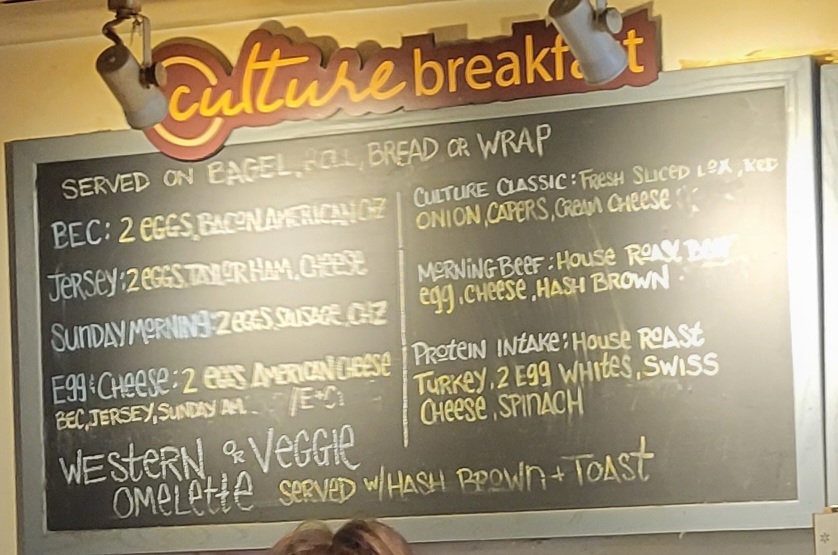 culture breakfast
SERVED ON BAGEL, ROLL, BREAD OR WRAP
BEC: 2 EGGS, BACON, AMERICAN CHZ
JERSEY: 2 EGGS, TAYLOR HAM, CHEESE
SUNDAY MORNING: 2 EGGS, SAUSAGE, CHZ
EGG & CHEESE: 2 EGGS AMERICAN CHEESE
BEC, JERSEY, SUNDAY AM
WESTERN OR VEGGIE
OMELETTE SERVED W/ HASH BROWN + TOAST
CULTURE CLASSIC: FRESH SLICED LOX, RED
ONION, CAPERS, CREAM CHEESE
MORNING BEEF: HOUSE ROAST BEEF
egg, CHEESE, HASH BROWN
PROTEIN INTAKE: HOUSE ROAST
TURKEY, 2 EGG WHITES, SWISS
CHEESE, SPINACH